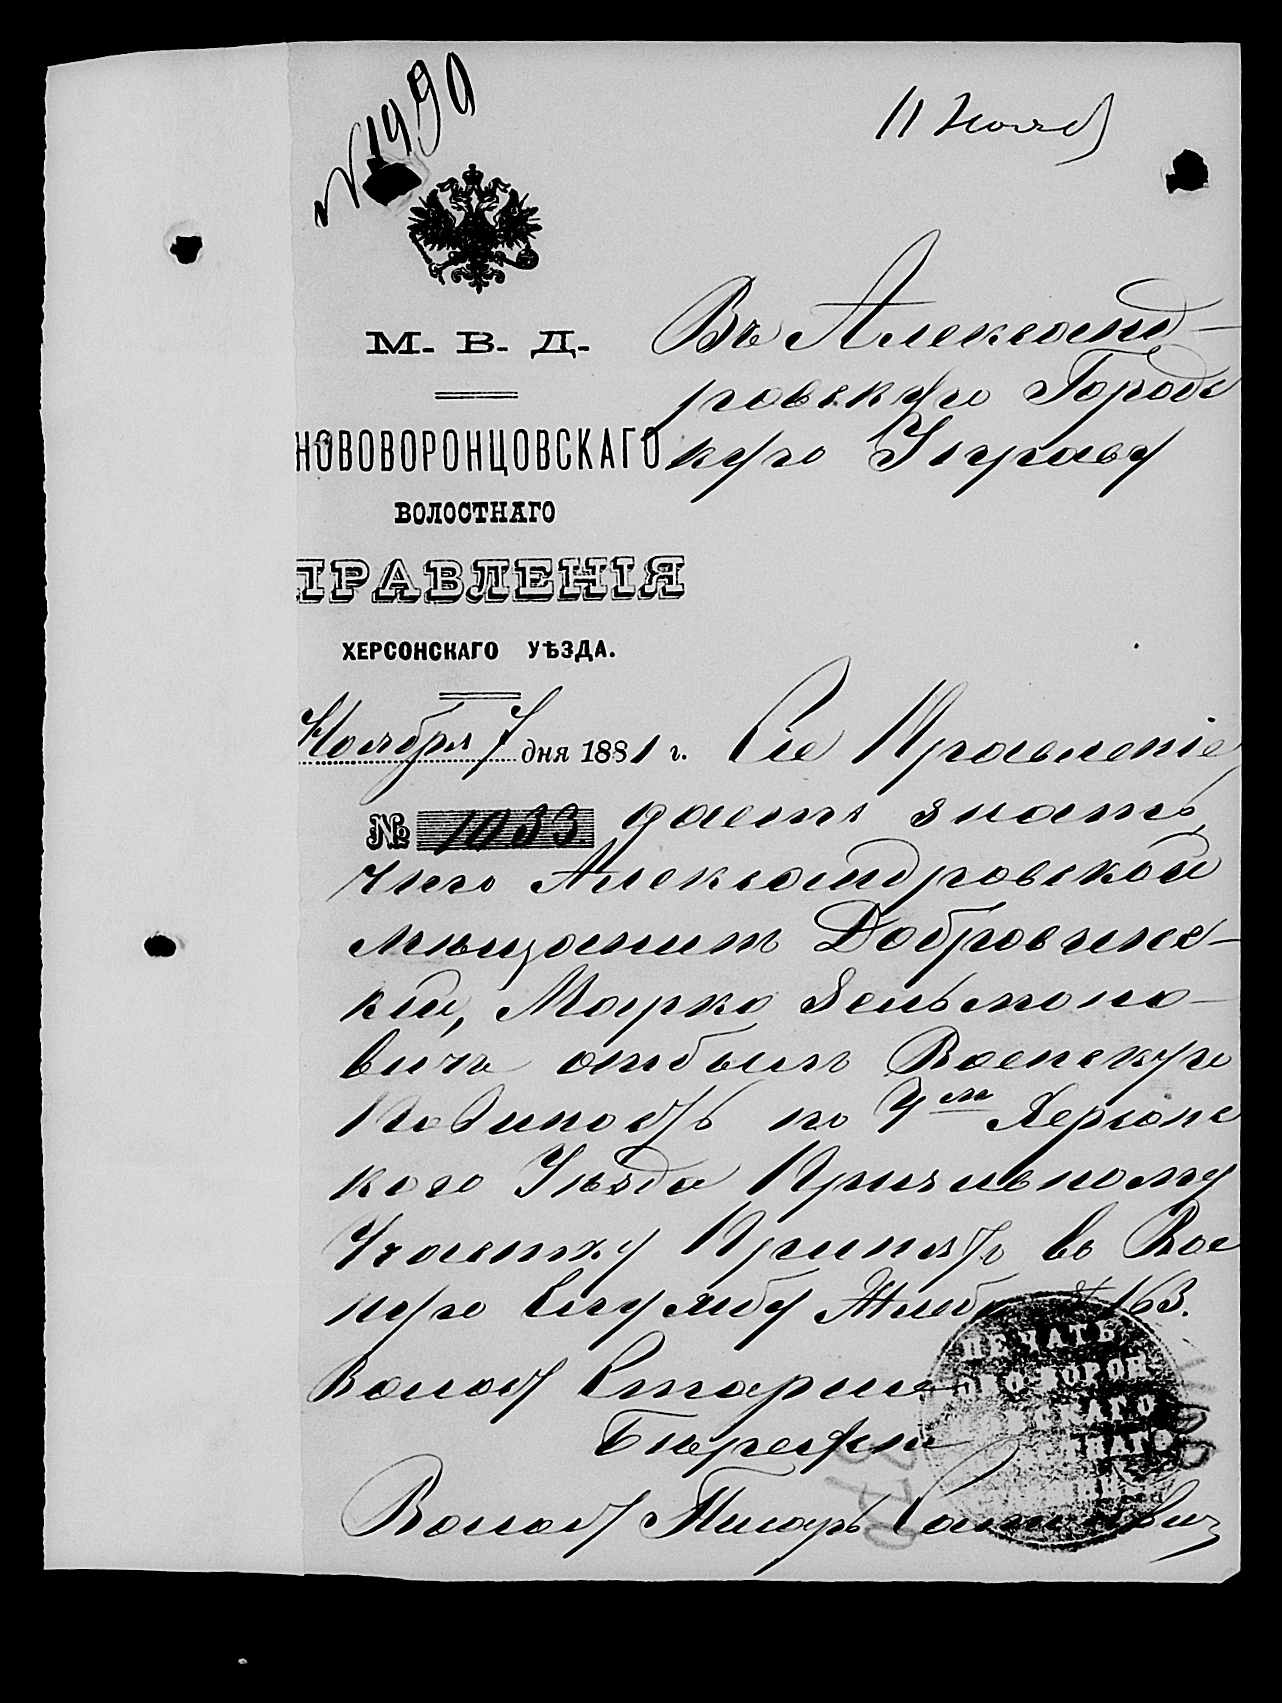 № 1990
11 Нояб
М. В. Д.
НОВОВОРОНЦОВСКАГО
ВОЛОСТНАГО
ПРАВЛЕНІЯ
ХЕРСОНСКАГО УѢЗДА.
Ноября 7 дня 1881 г.
№ 1033
Въ Александ-
ровскую Городс
кую Управу
Сіе Правленіе
даетъ знать,
что Александровской
мѣщанинъ Добровинс-
кій, Марко Зельмоно-
вичъ отбылъ Военскую
Повиность по 4м Херсонс
кого Уѣзда Призывному
Участку Принятъ въ Вое
ную Службу Жребій № 163.
Волост Старши
Волост Писарь
ПЕЧАТЬ
ОВО-ВОРОН-
СКАГО